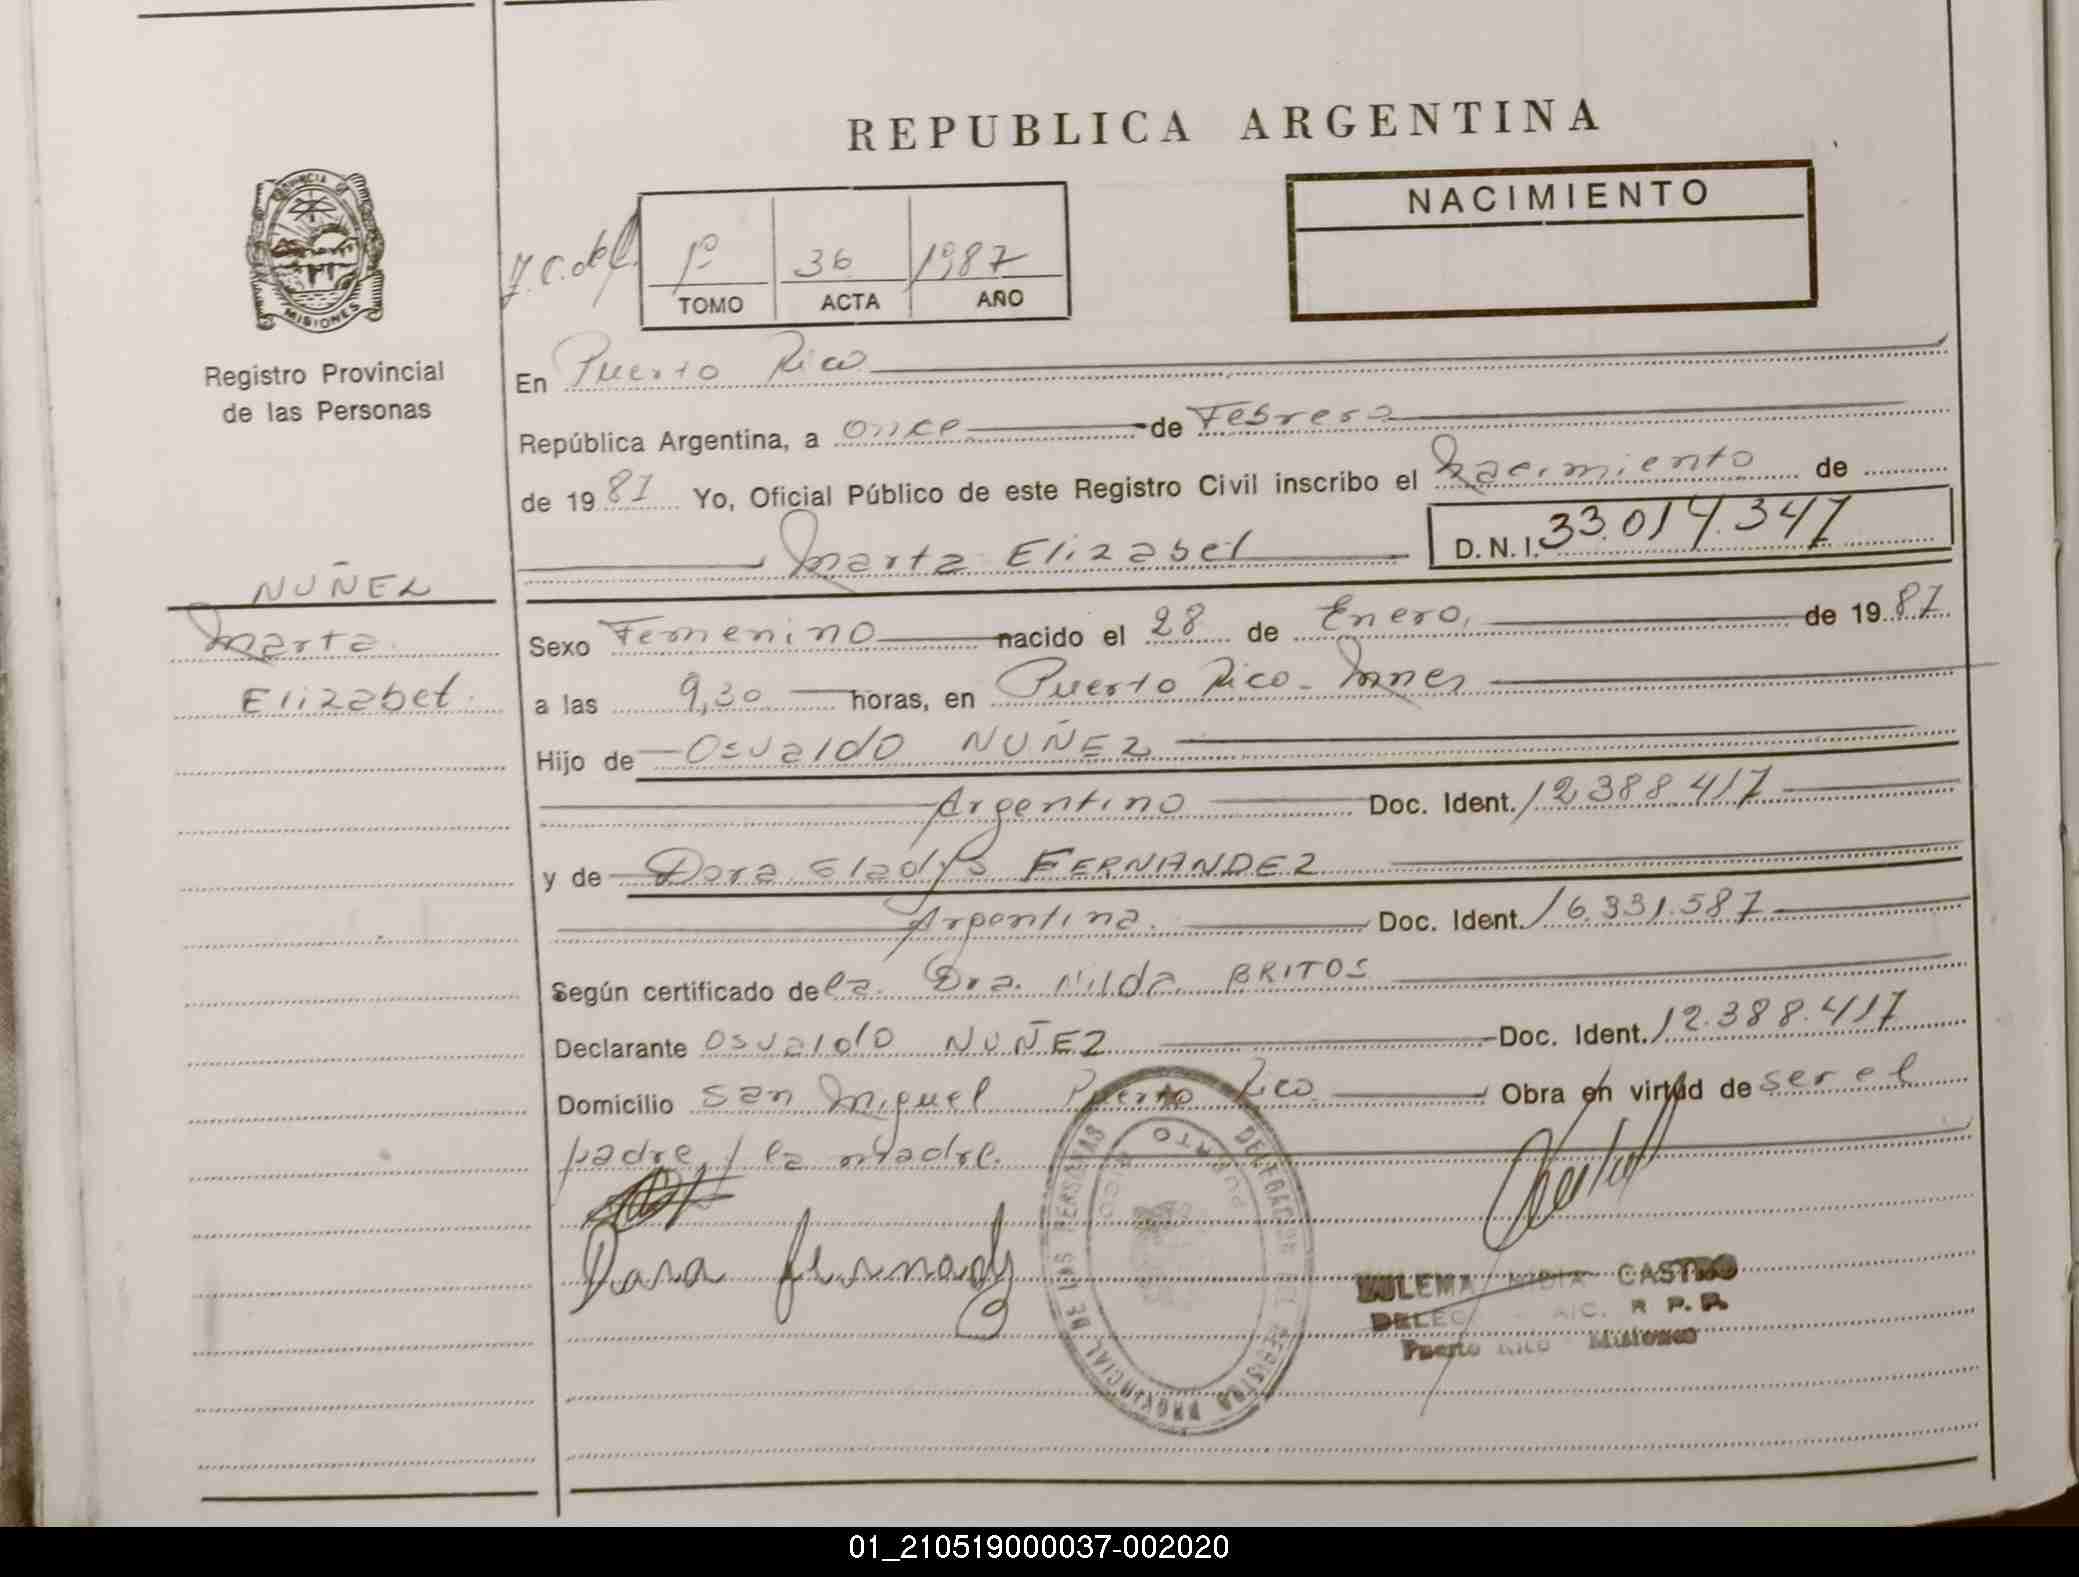 REPUBLICA ARGENTINA
PROVINCIA DE
MISIONES
Registro Provincial
de las Personas
NACIMIENTO
1º 36 1987
TOMO ACTA AÑO
En Puerto Rico
República Argentina, a once de Febrero
de 19 87 Yo, Oficial Público de este Registro Civil inscribo el Nacimiento de
Marta Elizabet D.N.I. 33.014.347
NUÑEZ
Marta
Elizabet
Sexo Femenino nacido el 28 de Enero, de 19 87
a las 9,30 horas, en Puerto Rico - Mnes
Hijo de Osvaldo NUÑEZ
Argentino Doc. Ident. 12.388.417
y de Dora Gladys FERNANDEZ
Argentina. Doc. Ident. 16.331.587
Según certificado de la Dra. Nilda BRITOS
Declarante Osvaldo NUÑEZ Doc. Ident. 12.388.417
Domicilio San Miguel Puerto Rico Obra en virtud de ser el
padre y la madre.
Dora
PUERTO RICO
CASTRO
R. P. P.
Puerto Rico Misiones
01_210519000037-002020